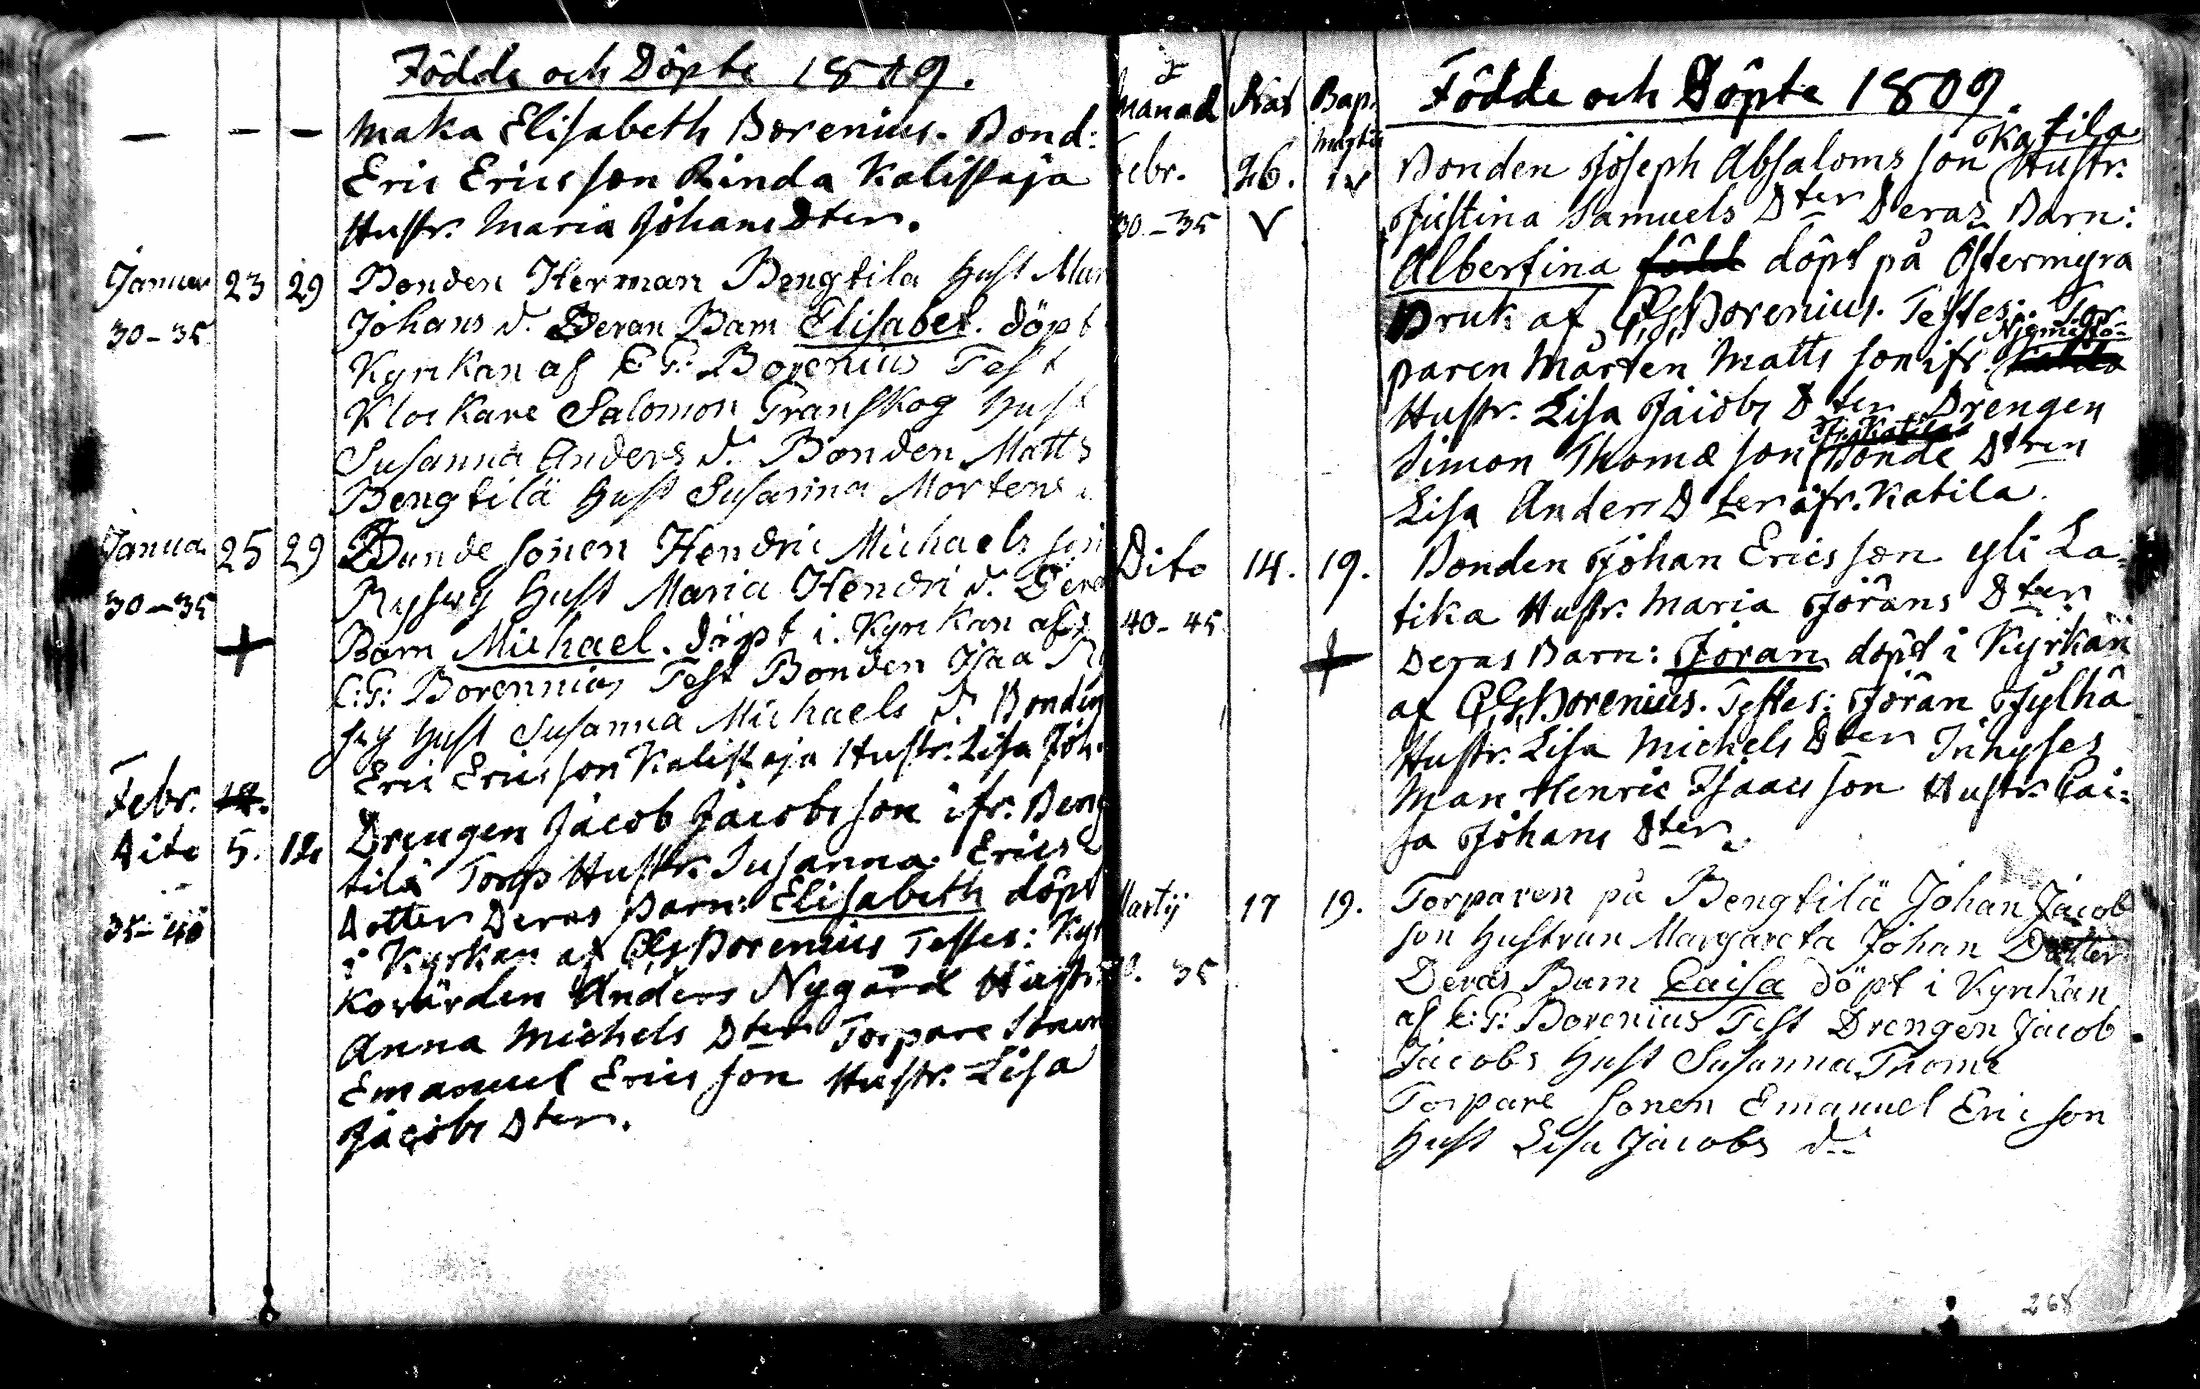 Födde och Döpte 1809.
— — — Maka Elisabeth Borenius. Bond:
Eric Ericsson Rinda Kalistaja
Hustr. Maria Johans Dter.
Januar 23 29 Bonden Herman Bengtila Hust
30-35 Johans d. Deran Barn Elisabet. döpt
Kyrkan af C: G: Borenius Test
Klockare Salomon Granskog Hust
Susanna Anders d. Bonden Matts
Bengtilä Hust Susanna Mortens
Janua 25 29 Bunde sonen Hendric Michaels son
30-35 Hust Maria Hendri d. Dera
+ Barn Michael. döpt i Kyrkan af
C: G: Borennius Test Bonden Isaa
Hust Susanna Michaels d. Bonden
Eric Ericsson Kalistaja Hustr. Lisa Joh.
Febr. 12.
Dito 5. 12 Drengen Jacob Jacobsson ifr. Beng
tilä Torp Hustr. Susanna Erics
35-40 Dotter Deras Barn: Elisabeth döpt
i Kyrkan af C: G: Borenius Testes: Kyr
kovärden Anders Nygård Hustr.
Anna Michels Dter Torpare Sonen
Emanuel Ericsson Hustr. Lisa
Jacobs Dter.
Månad Nat Bap. Födde och Döpte 1809.
Katila
Febr. 26. Bonden Joseph Absalomsson Hustr.
30-35 V Justina Samuels Dter Deras Barn:
Albertina född döpt på Östermyra
Bruk af C: G: Borenius. Testes: Tor-
Niemistö-
paren Mårten Mattsson ifr.
Hustr. Lisa Jacobs Dter Drengen
ifr. Katila
Simon Thomæson Bonde Dtren
Lisa Anders Dter ifr. Katila.
Dito 14. 19. Bonden Johan Ericsson yli La-
40-45 tika Hustr. Maria Jörans Dter
+ Deras Barn: Jöran döpt i Kyrkan
af C: G: Borenius. Testes: Jöran Jylhä
Hustr. Lisa Michels Dter Inhyses
Man Henric Isaacsson Hustr. Cai-
sa Johans Dter.
Martij 17 19. Torparen på Bengtilä Johan Jacob
son Hustrun Margareta Johan Dotter
35 Deras Barn Caisa döpt i Kyrkan
af C: G: Borenius Test Drengen Jacob
Jacobs Hust Susanna Thome
Torpare Sonen Emanuel Ericson
Hust Lisa Jacobs d.
268